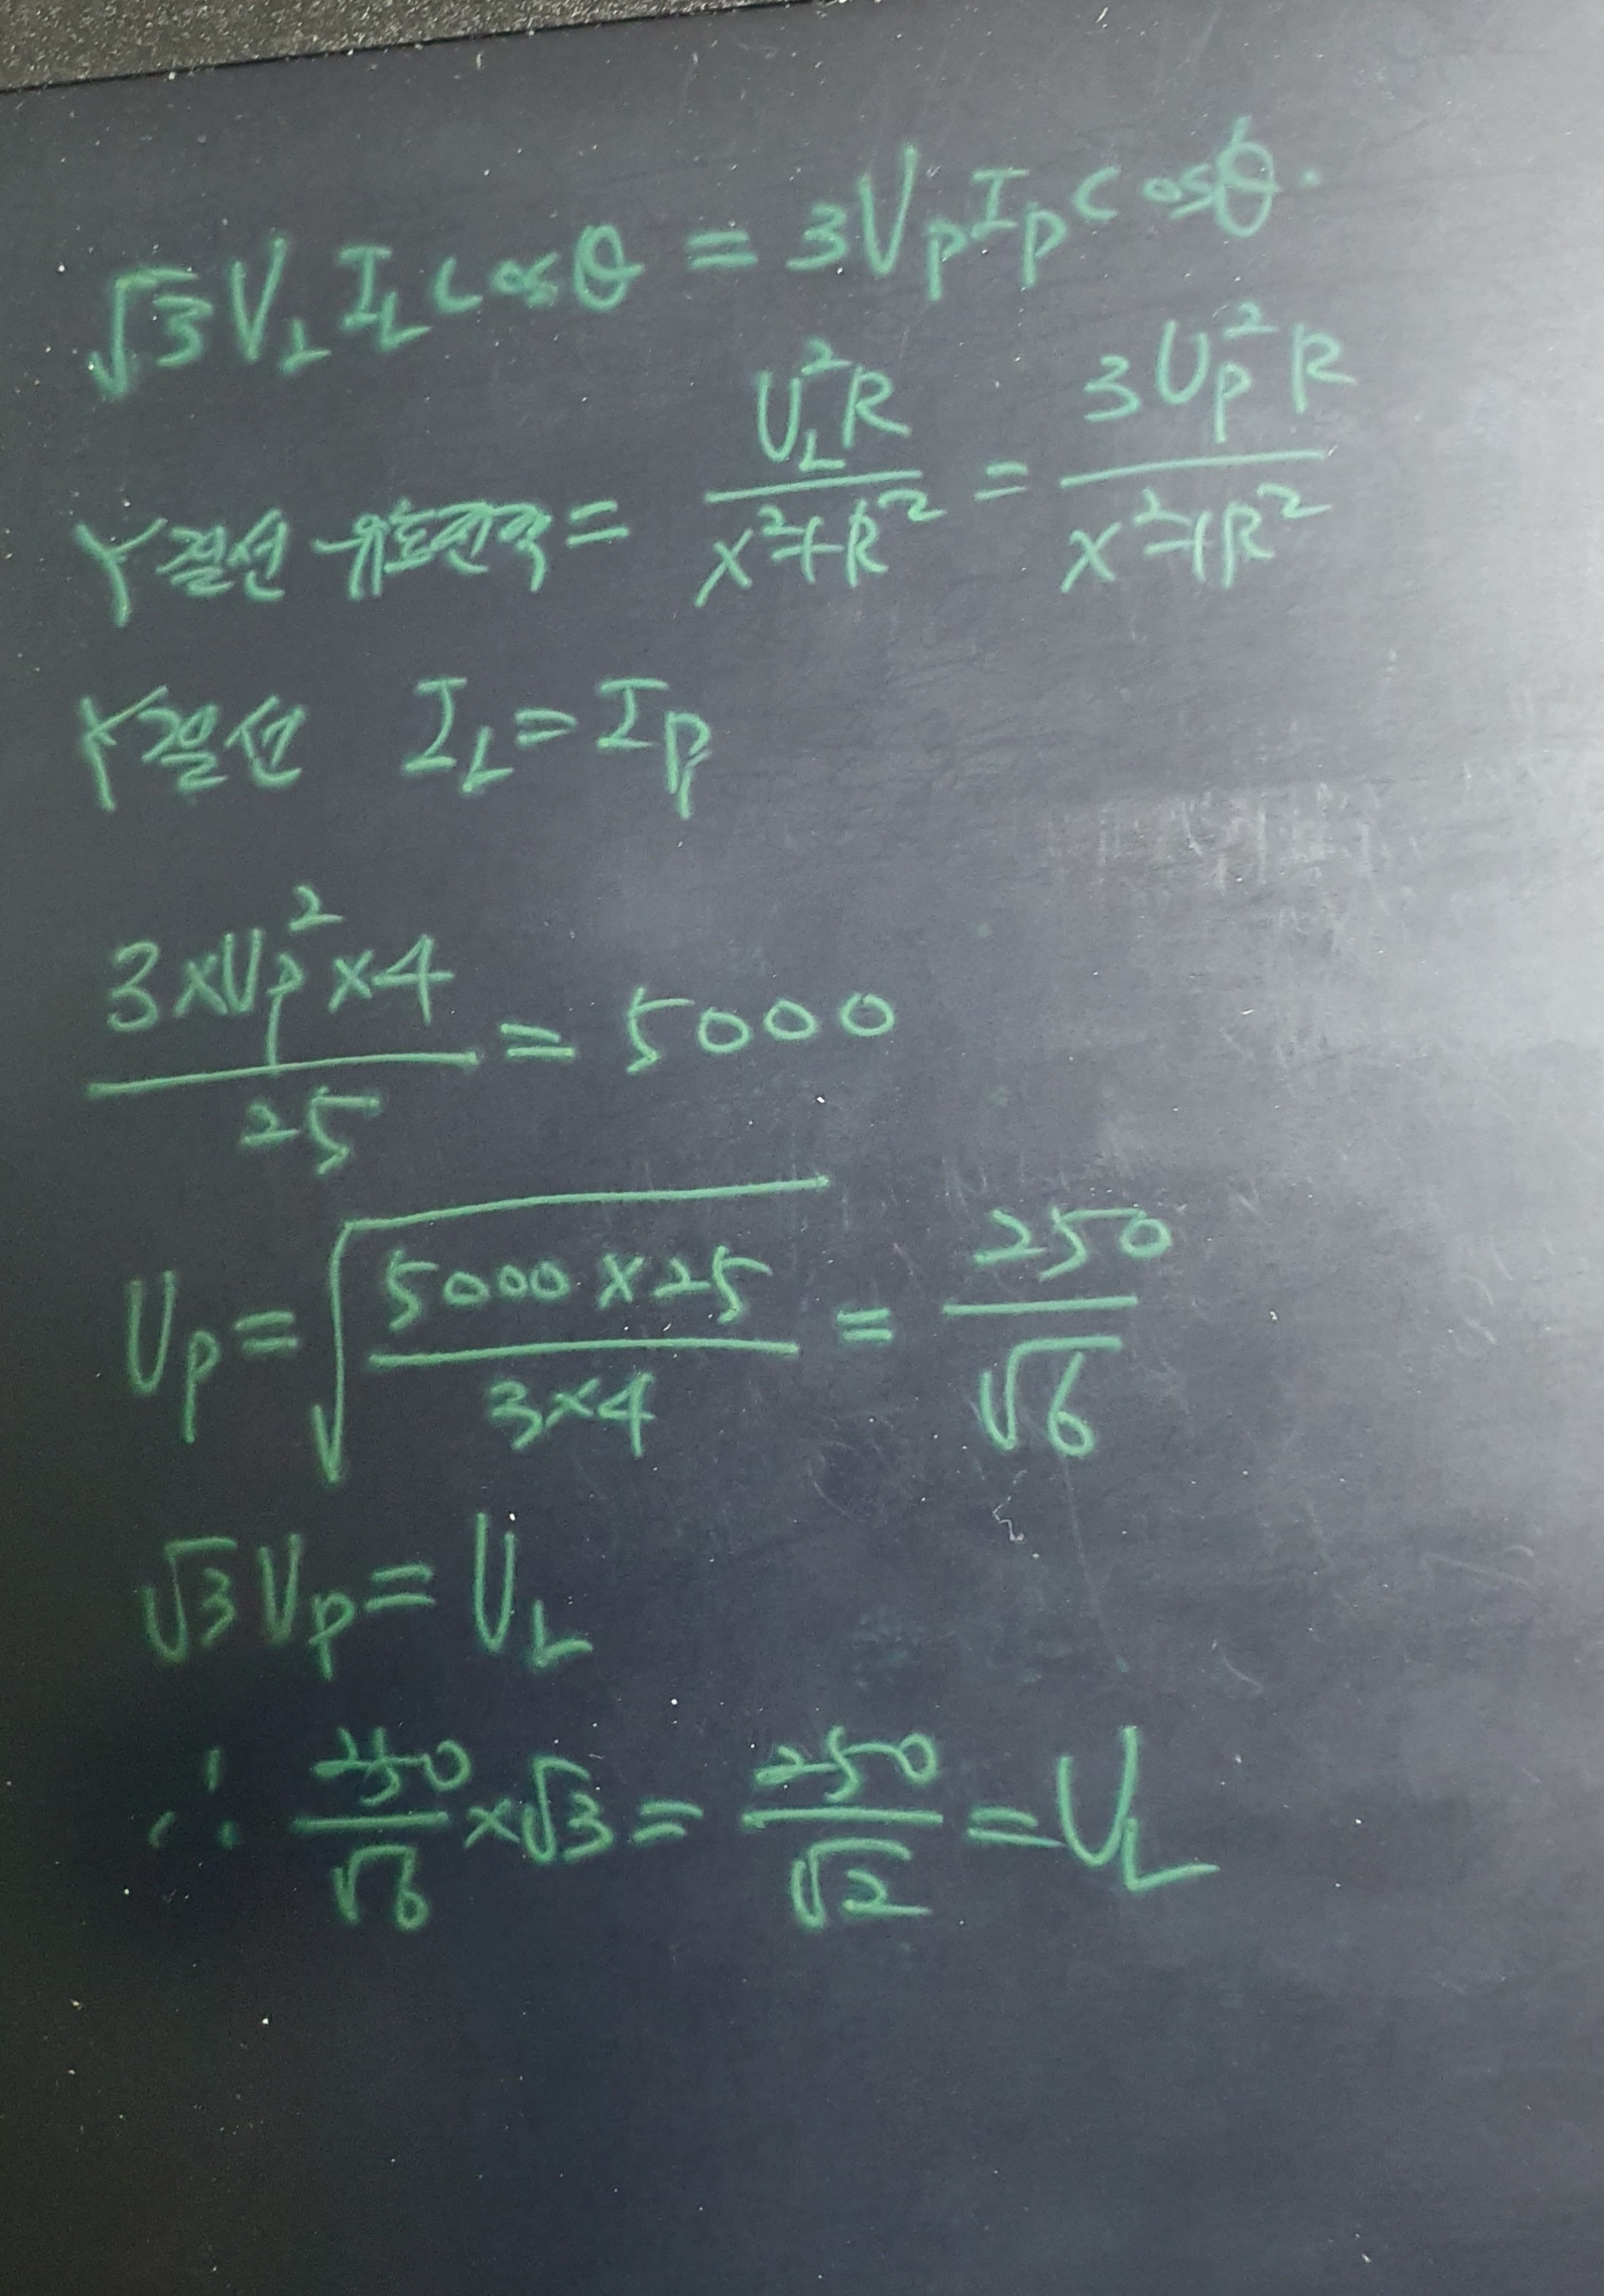 √3 V_L I_L cosθ = 3V_P I_P cosθ.
Y결선 유효전력 = V_L²R / X²+R² = 3V_P²R / X²+R²
Y결선 I_L = I_P
3×V_P²×4 / 25 = 5000
V_P = √(5000×25 / 3×4) = 250 / √6
√3 V_P = V_L
∴ 250/√6 ×√3 = 250/√2 = V_L